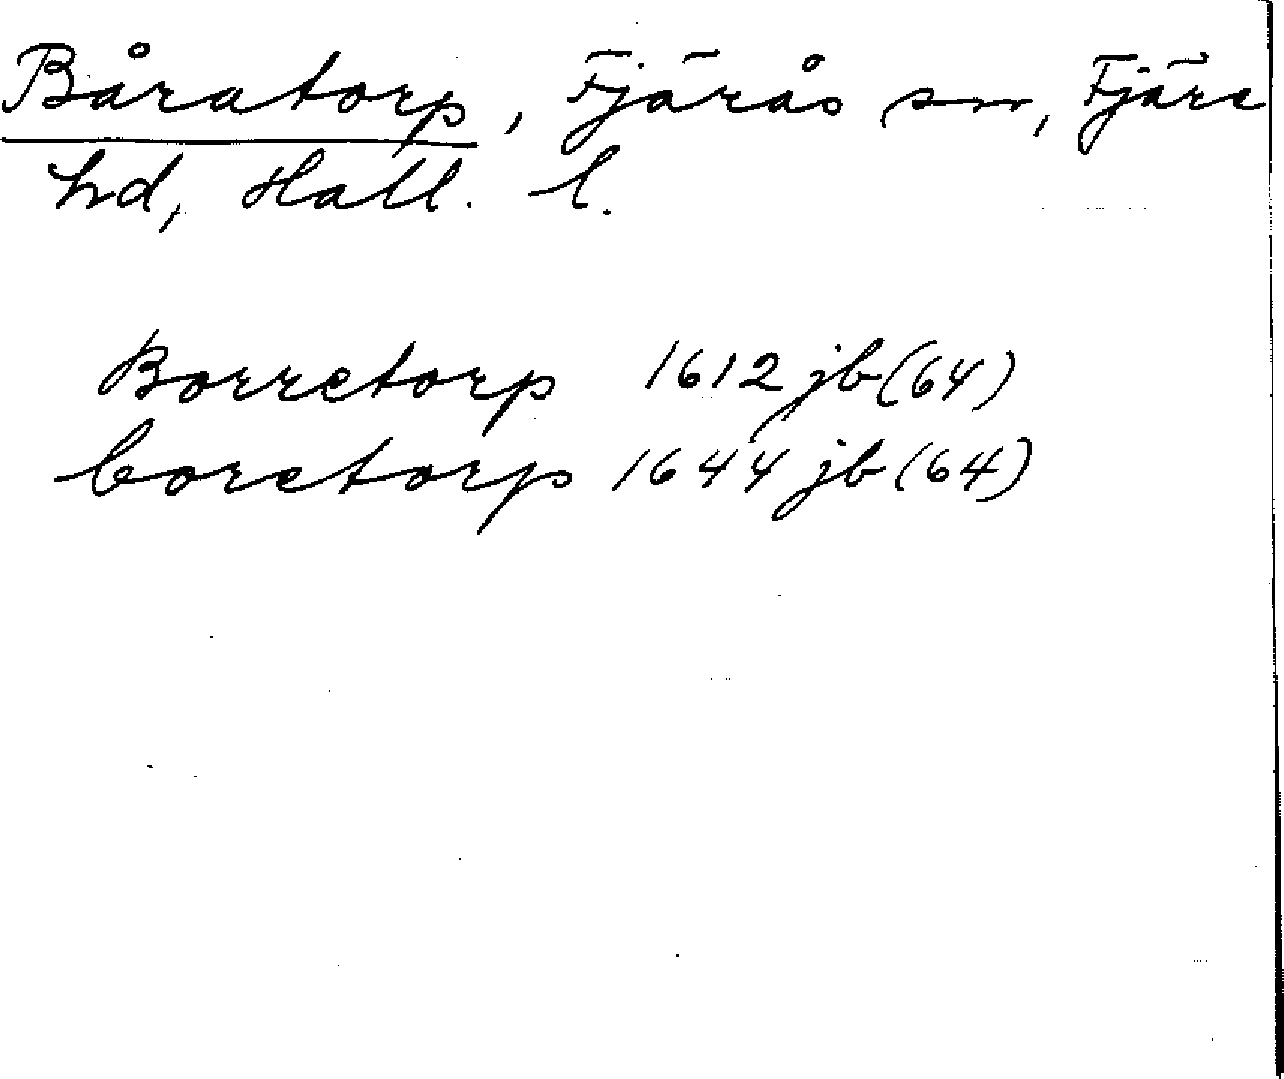 Båratorp, Fjärås sn, Fjäre
hd, Hall. l.
Borretorp 1612 jb (64)
boretorp 1644 jb (64)